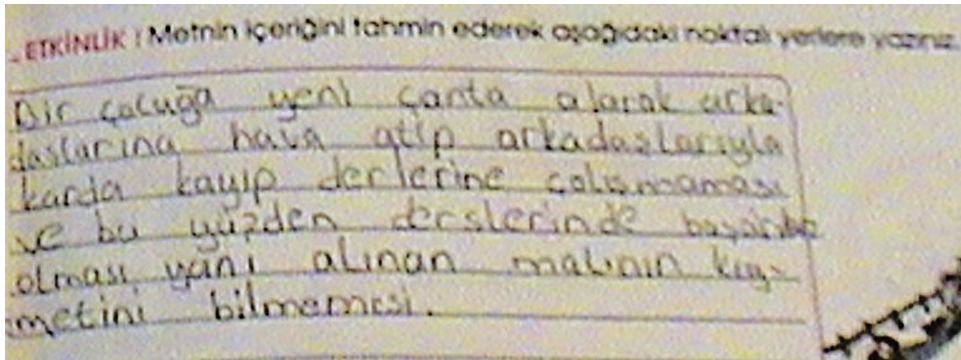 ETKİNLİK : Metnin içeriğini tahmin ederek aşağıdaki noktalı yerlere yazınız.
Bir çocuğa yeni çanta alarak arka-
daşlarına hava atıp arkadaşlarıyla
karda kayıp derlerine çalışmaması
ve bu yüzden derslerinde başarısız
olması, yani alınan malının kıy-
metini bilmemesi.